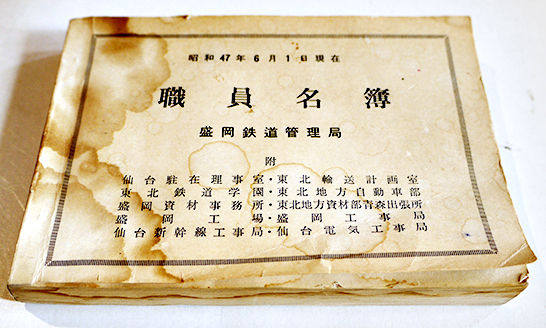 昭和47年6月1日現在
職員名簿
盛岡鉄道管理局
附
仙台駐在理事室・東北輸送計画室
東北鉄道学園・東北地方自動車部
盛岡資材事務所・東北地方資材部青森出張所
盛岡工場・盛岡工事局
仙台新幹線工事局・仙台電気工事局